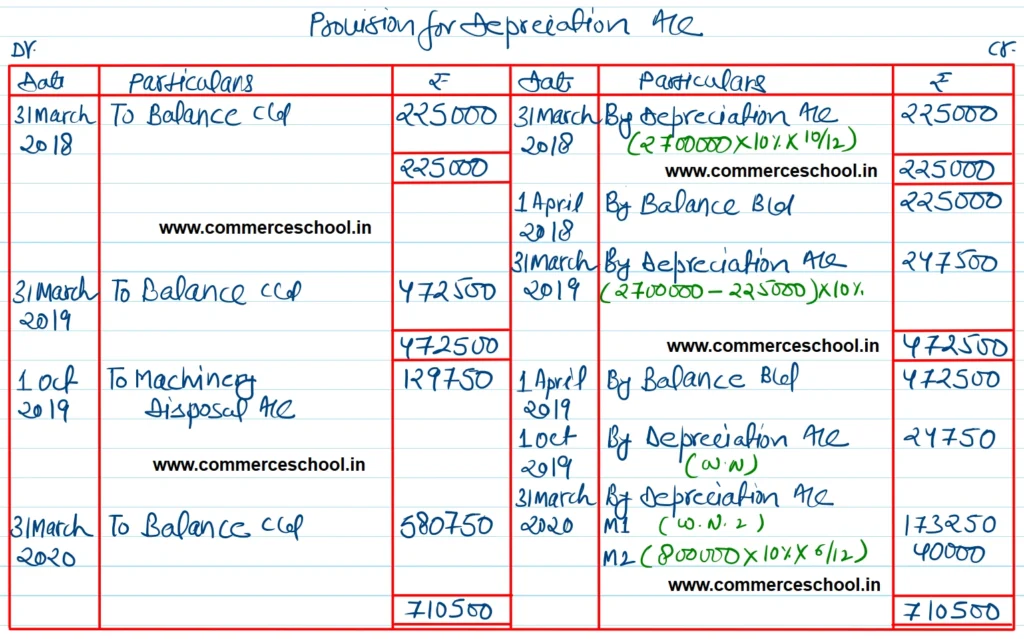 Provision for Depreciation A/c
Dr. Cr.
Date Particulars ₹ Date Particulars ₹
31 March To Balance c/d 225000 31 March By Depreciation A/c 225000
2018 2018 (2700000 X 10% X 10/12)
225000 www.commerceschool.in 225000
1 April By Balance B/d 225000
www.commerceschool.in 2018
31 March By Depreciation A/c 247500
31 March To Balance c/d 472500 2019 (2700000 - 225000) X 10%
2019
472500 www.commerceschool.in 472500
1 Oct To Machinery 129750 1 April By Balance B/d 472500
2019 Disposal A/c 2019
1 Oct By Depreciation A/c 24750
www.commerceschool.in 2019 (W.N)
31 March By Depreciation A/c
31 March To Balance c/d 580750 2020 M1 (W.N. 2) 173250
2020 M2 (800000 X 10% X 6/12) 40000
www.commerceschool.in
710500 710500